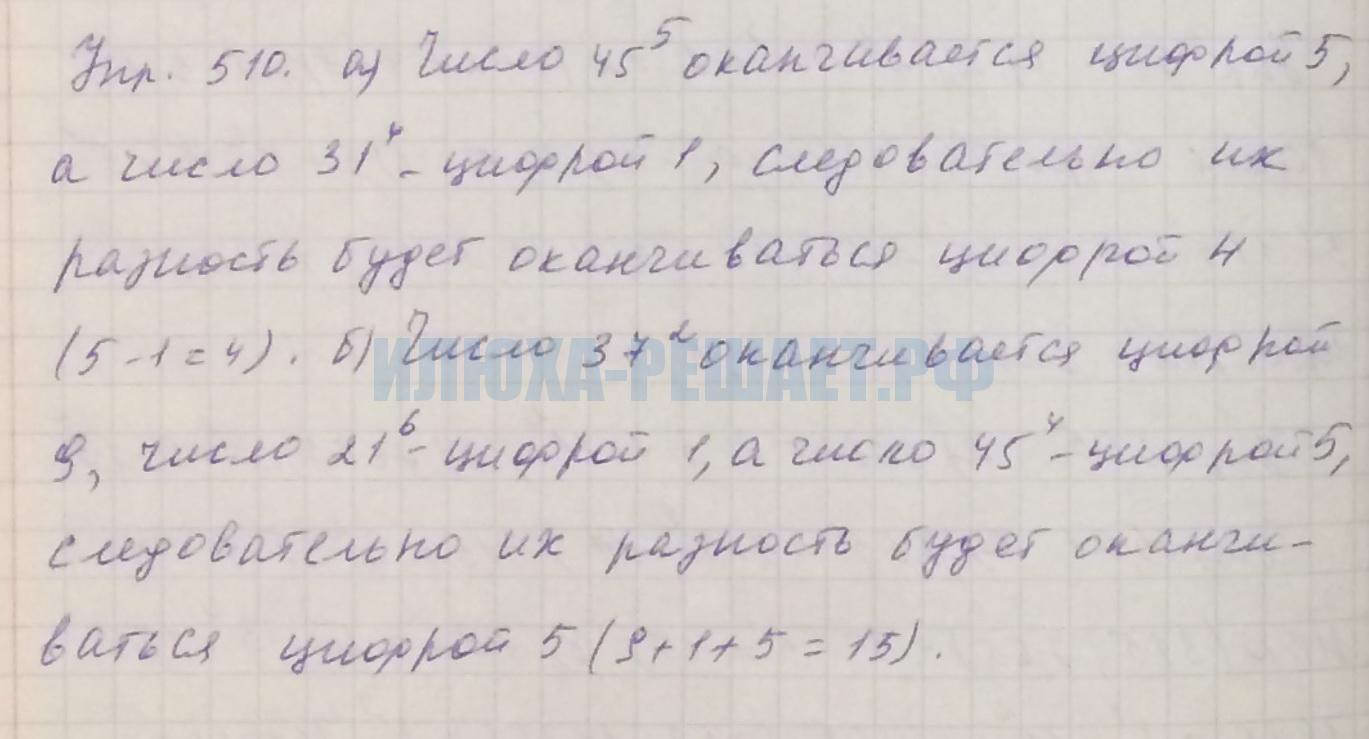 Упр. 510. а) Число 45⁵ оканчивается цифрой 5,
а число 31⁴ - цифрой 1, следовательно их
разность будет оканчиваться цифрой 4
(5-1=4). б) Число 37² оканчивается цифрой
ИЛЮХА-РЕШАЕТ.РФ
9, число 21⁶ - цифрой 1, а число 45⁴ - цифрой 5,
следовательно их разность будет оканчи-
ваться цифрой 5 (9+1+5=15).